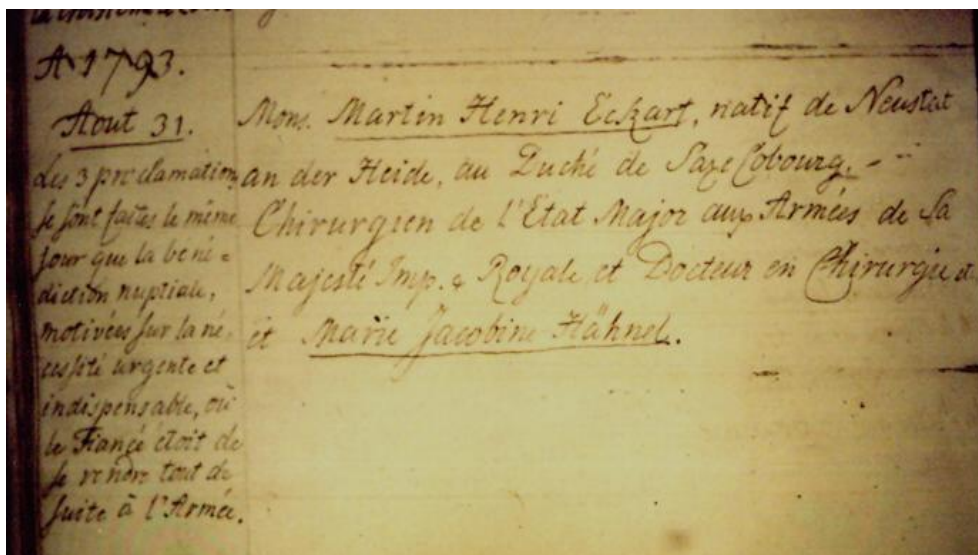 A 1793.
Aout 31.
Les 3 proclamations
se sont faites le même
jour que la béné=
diction nuptiale,
motivées sur la né-
cessité urgente et
indispensable, où
le Fiancé étoit de
se rendre tout de
suite à l'Armée.
Mons. Martin Henri Eckart, natif de Neustat
an der Heide, au Duché de Saxe Cobourg.
Chirurgien de l'Etat Major aux Armées de Sa
Majesté Imp. & Royale et Docteur en Chirurgie et
et Marie Jacobine Hähnel.